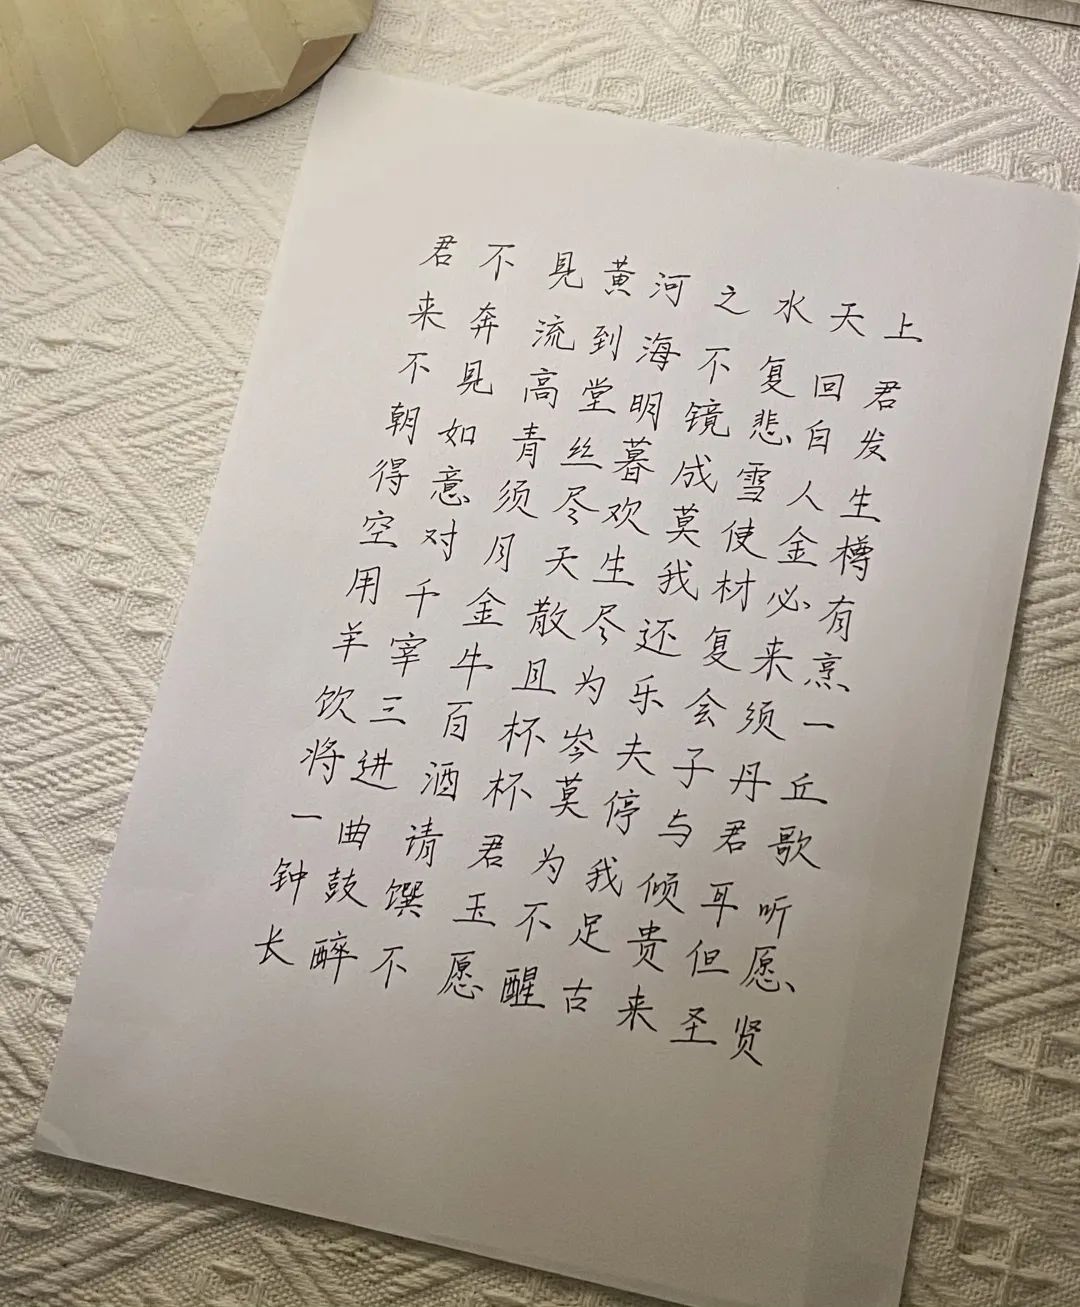 君不见黄河之水天上
来奔流到海不复回君
不见高堂明镜悲白发
朝如青丝暮成雪人生
得意须尽欢莫使金樽
空对月天生我材必有
用千金散尽还复来烹
羊宰牛且为乐会须一
饮三百杯岑夫子丹丘
将进酒杯莫停与君歌
一曲请君为我倾耳听
钟鼓馔玉不足贵但愿
长醉不愿醒古来圣贤